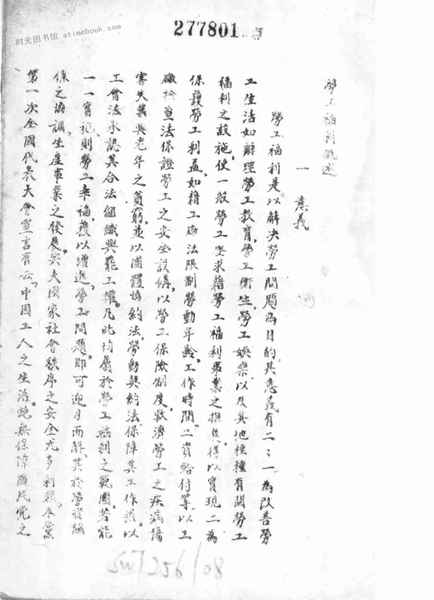 时光图书馆 atimebook.com
277801
勞工福利概述
一 意義
勞工福利是以解決勞工問題為目的其意義有二：一為改善勞
工生活如辦理勞工教育，勞工衛生勞工娛樂以及其他種種有關勞工
福利之設施，使一般勞工要求藉勞工福利事業之推進得以實現二為
保護勞工利益，如藉工廠法限制勞動年齡，工作時間，工資給付等以工
廠檢查法保證勞工之安全設備，以勞工保險制度，救濟勞工之疾病傷
害失業與老年之貧窮，並以團體協約法，勞動契約法保障其工作，以
工會法承認其合法組織與罷工權凡此均屬於勞工福利之範圍，若能
一一實施則勞工幸福應以增進，勞工問題即可迎刃而解其於勞資關
係之協調生產事業之發展與夫國家社會秩序之安全尤多利賴，本黨
第一次全國代表大會宣言有云，「中國工人之生活絕無保障國民黨之